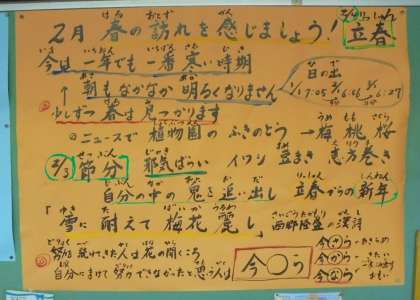 2月 春の訪れを感じましょう! 2/4 立春
今は一年でも一番寒い時期
↑朝もなかなか明るくなりません
日の出
1/1 7:05 2/1 6:56 3/1 6:27
少しずつ春は見つかります
ニュースで植物園のふきのとう→梅桃桜
2/3 節分 邪気ばらい イワシ 豆まき 恵方巻き
自分の中の鬼を追い出し 立春からの新年
「雪に耐えて梅花麗し」 西郷隆盛の漢詩
努力し疲れてきた人は花の開くころ
自分にまけて努力できなかったと思う人は
今〇う